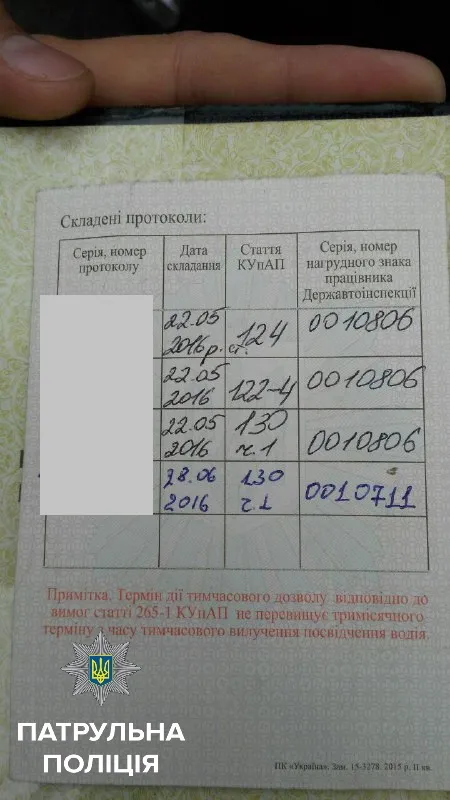 Складені протоколи:
Серія, номер протоколу
Дата складання
Стаття КУпАП
Серія, номер нагрудного знака працівника Державтоінспекції
22.05 2016р. ст. 124 0010806
22.05 2016 122-4 0010806
22.05 2016 130 ч.1 0010806
28.06 2016 130 ч.1 0010711
Примітка. Термін дії тимчасового дозволу відповідно до
вимог статті 265-1 КУпАП не перевищує тримісячного
терміну з часу тимчасового вилучення посвідчення водія.
ПАТРУЛЬНА
ПОЛІЦІЯ
ПК «Україна». Зам. 15-3278. 2015 р. II кв.